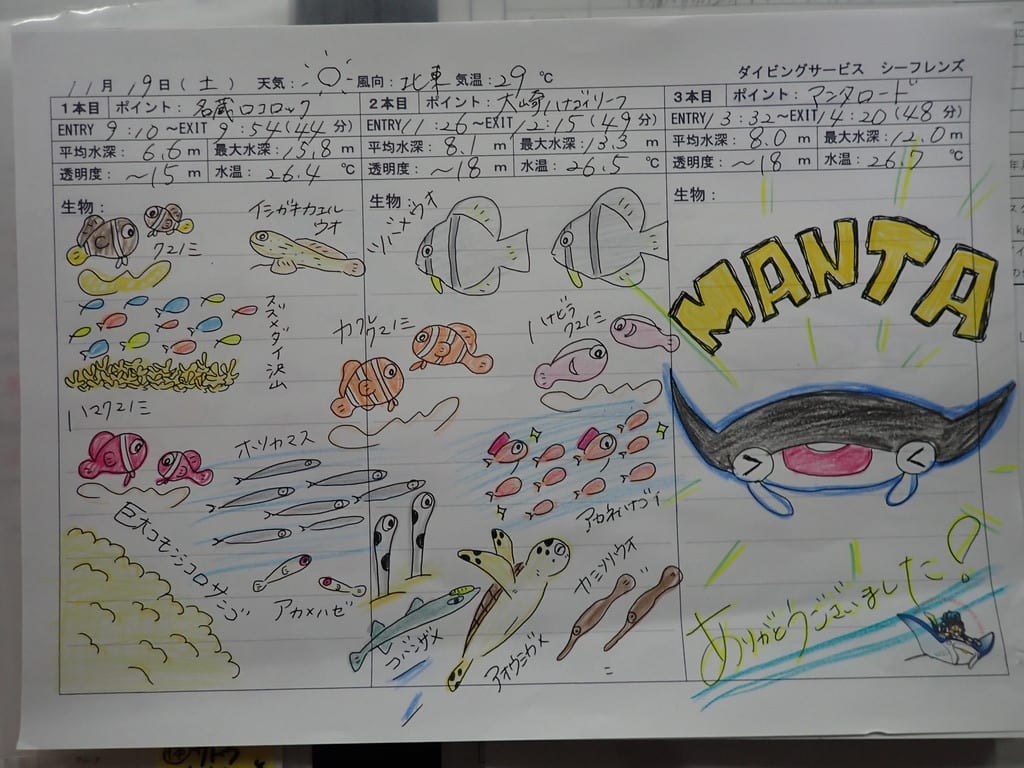 11月 19日 (土) 天気: 風向: 北東 気温: 29 ℃ ダイビングサービス シーフレンズ
1本目 ポイント: 名蔵ロコロック
ENTRY 9:10 ~EXIT 9:54 (44 分)
平均水深: 6.6 m 最大水深: 15.8 m
透明度: ~15 m 水温: 26.4 ℃
生物:
クマノミ
イシガキカエル
ウオ
スズメダイ沢山
ハマクマノミ
ホソカマス
巨大コモンシコロサンゴ
アカメハゼ
2本目 ポイント: 大崎ハナゴイリーフ
ENTRY 11:26 ~EXIT 12:15 (49 分)
平均水深: 8.1 m 最大水深: 13.3 m
透明度: ~18 m 水温: 26.5 ℃
生物:
カクレ
クマノミ
ハナビラ
クマノミ
アカネハナゴイ
コバンザメ
アオウミガメ
カミソリウオ
3本目 ポイント: マンタロード
ENTRY 13:32 ~EXIT 14:20 (48 分)
平均水深: 8.0 m 最大水深: 12.0 m
透明度: ~18 m 水温: 26.7 ℃
生物:
MANTA
ありがとうございました!